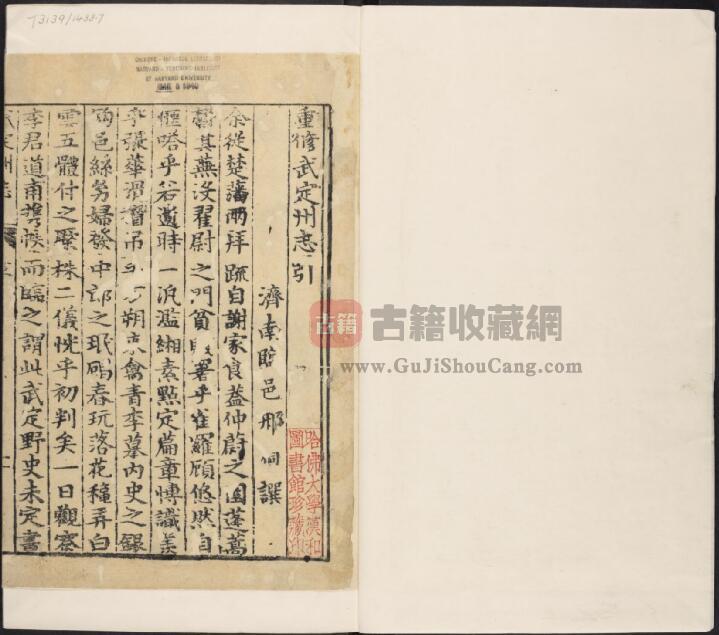 T3139/1433.7
CHINESE - JAPANESE LIBRARY
HARVARD - YENCHING INSTITUTE
AT HARVARD UNIVERSITY
MAR 6 1940
重修武定州志引
濟南臨邑邢侗譔
余從楚藩兩拜疏自謝家食蓋仲蔚之園蓬蒿
其燕沒翟尉之門貧署乎雀羅顧悠然自
偃嗒乎若遺時一泛濫緗素點定篇章慱議
張華朔禽青李墓內史之
邑絲勞婦發中郎之珉碣春玩落花穐弄白
雲五體付之聚株二儀恍乎初判矣一日觀察
李君道甫携帙而臨之謂此武定野史未定書
武定州志
哈佛大學漢和
圖書館珍藏印
古籍
古籍收藏網
www.GuJiShouCang.com